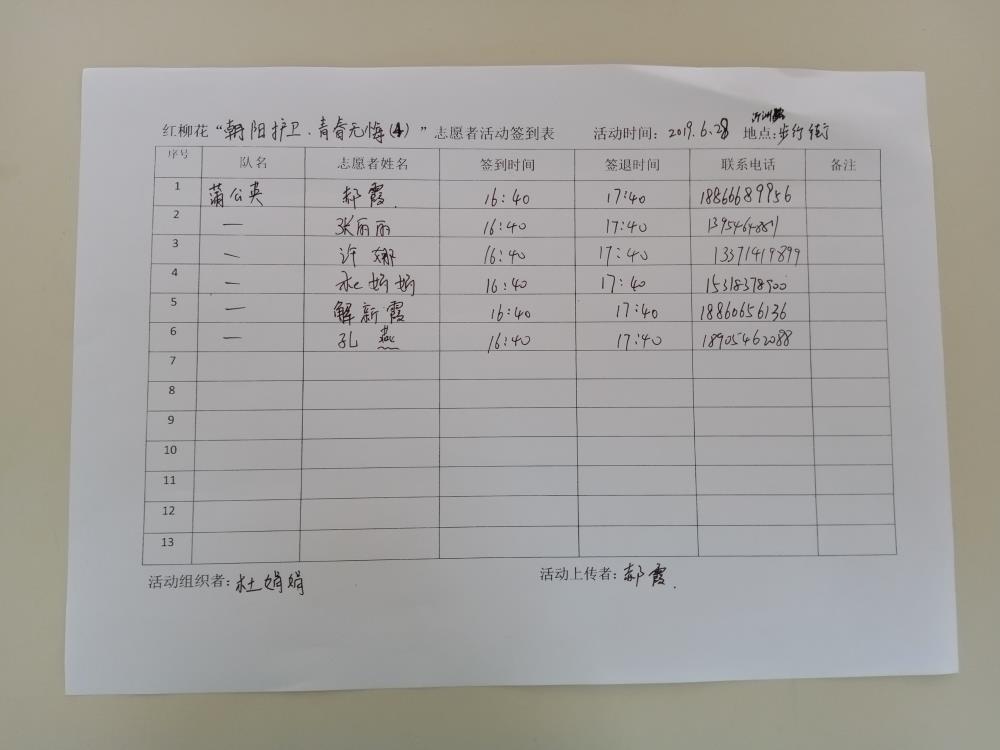 红柳花“朝阳护卫、青春无悔(4)”志愿者活动签到表 活动时间：2019.6.28 地点：步行街
序号 队名 志愿者姓名 签到时间 签退时间 联系电话 备注
1 蒲公英 郝霞 16:40 17:40 18866689956
2 — 张丽丽 16:40 17:40
3 — 许娜 16:40 17:40 13371419899
4 — 娟娟 16:40 17:40 15318378900
5 — 解新霞 16:40 17:40 18860656136
6 — 孔燕 16:40 17:40 18905462088
7
8
9
10
11
12
13
活动组织者：杜娟娟 活动上传者：郝霞.